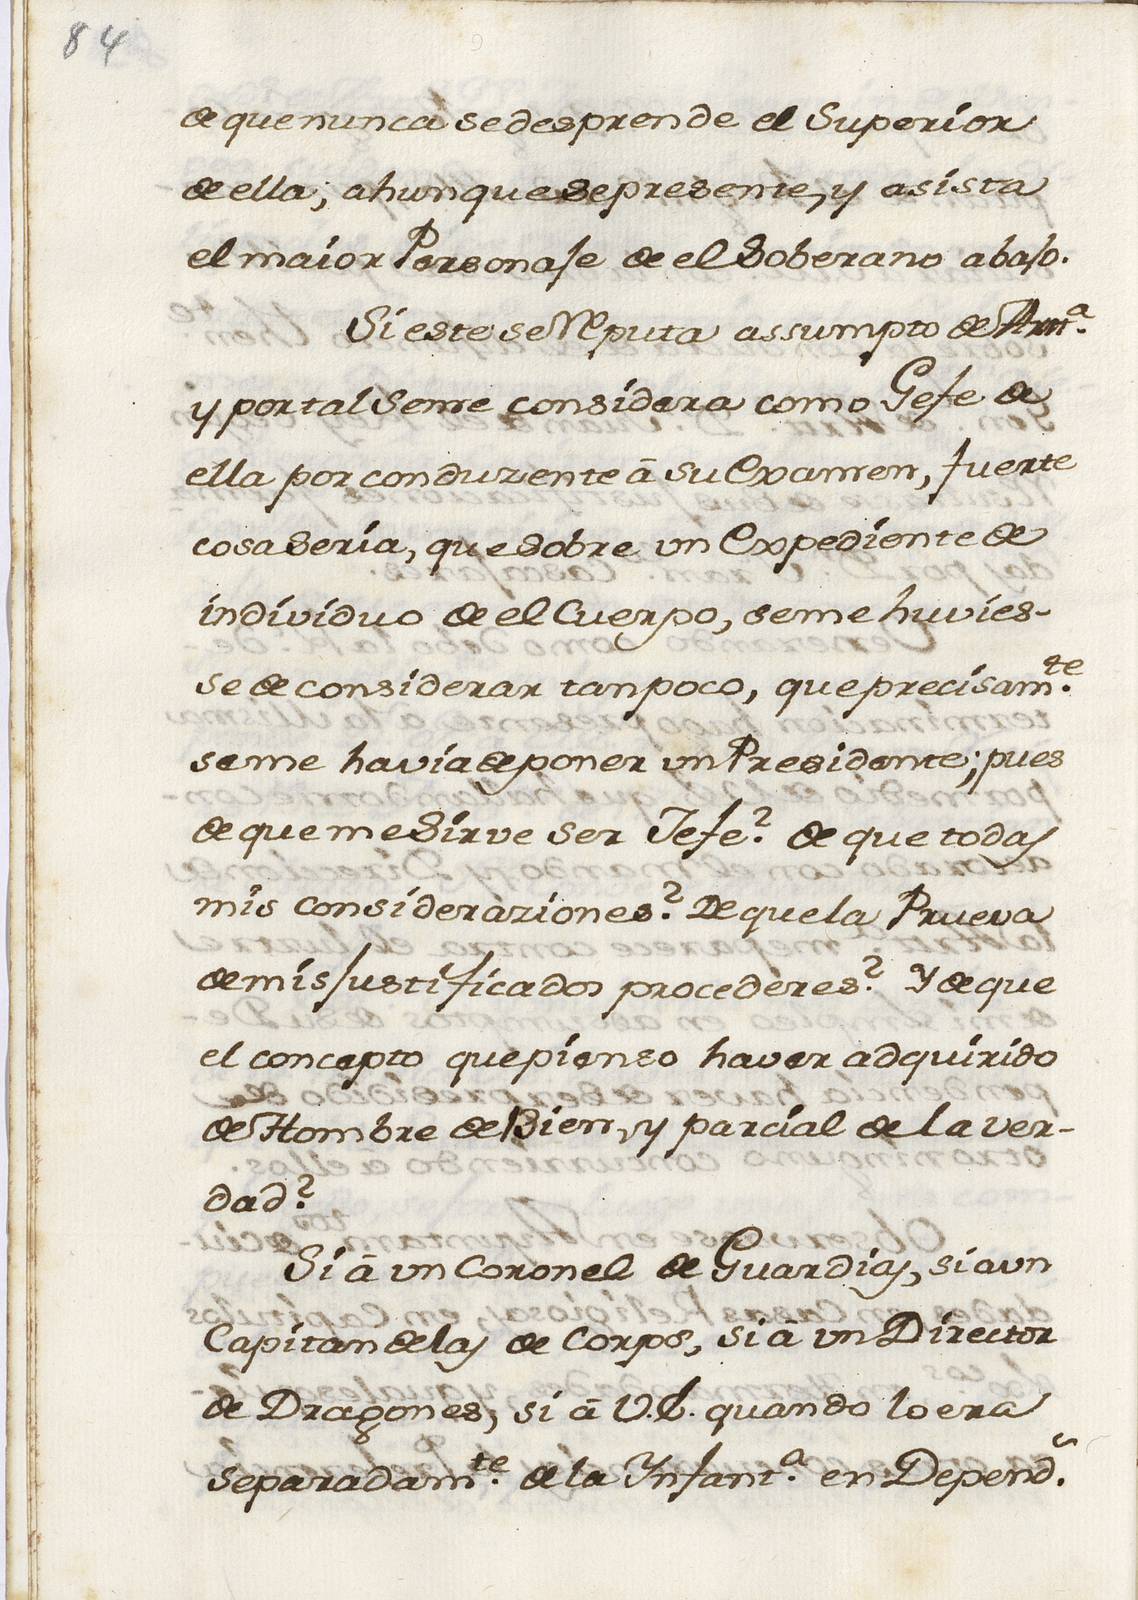 84
de que nunca se desprende el Superior
de ella; ahunque se presente, y asista
el maior Personaje de el Soberano abajo.
Si este se Reputa assumpto de Art.ª
y por tal se me considera como Gefe de
ella por conduzente â su Examen, fuerte
cosa seria, que sobre un Expediente de
individuo de el Cuerpo, se me huvies-
se de considerar tan poco, que precisam.te
se me havia de poner un Presidente; pues
de que me sirve ser Jefe? de que todas
mis consideraziones? De que la Prueva
de mis justificados procederes? Y de que
el concepto que pienso haver adquirido
de Hombre de Bien, y parcial de la ver-
dad?
Si â un Coronel de Guardias, si a un
Capitan de las de Corps, si â un Director
de Dragones, si â V.E. quando lo era
separadam.te de la Infant.ª en Depend.s